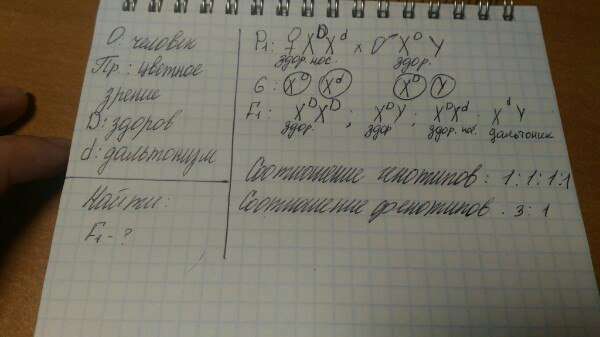 О: человек
Пр: цветное
зрение
D: здоров
d: дальтонизм
Найти:
F₁ - ?
P₁: ♀ X^D X^d × ♂ X^D Y
здор. нос. здор.
G: X^D X^d X^D Y
F₁: X^D X^D ; X^D Y ; X^D X^d ; X^d Y
здор. здор здор. нос. дальтоник
Соотношение генотипов: 1:1:1:1
Соотношение фенотипов. 3:1